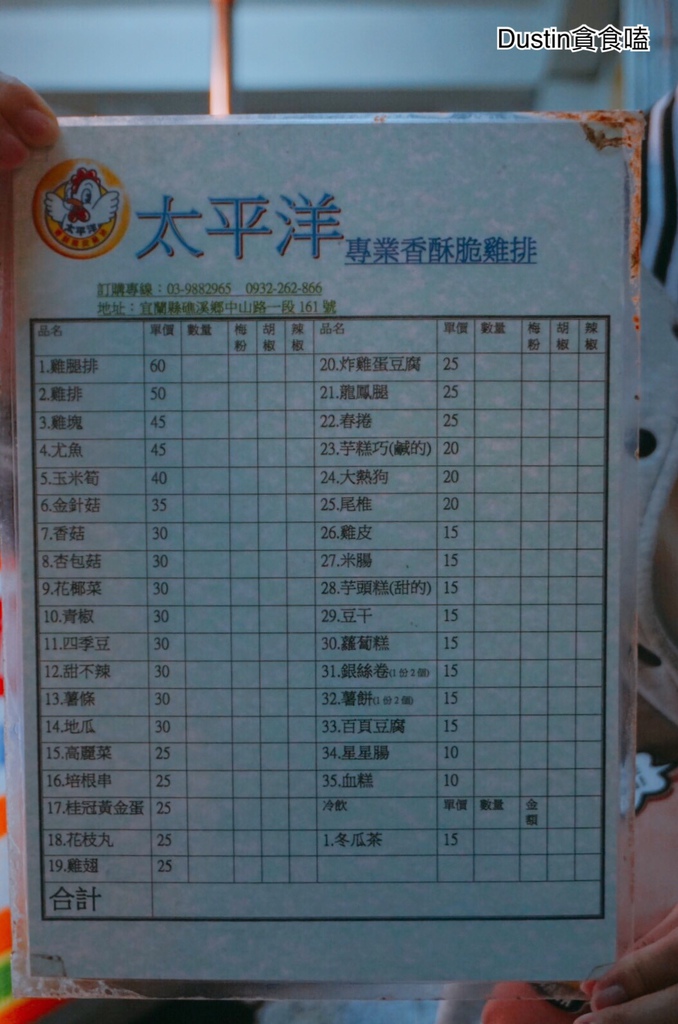 Dustin貪食嗑
太平洋
太平洋 專業香酥脆雞排
訂購專線：03-9882965 0932-262-866
地址：宜蘭縣礁溪鄉中山路一段 161 號
品名 單價 數量 梅粉 胡椒 辣椒 品名 單價 數量 梅粉 胡椒 辣椒
1.雞腿排 60 20.炸雞蛋豆腐 25
2.雞排 50 21.龍鳳腿 25
3.雞塊 45 22.春捲 25
4.尤魚 45 23.芋糕巧(鹹的) 20
5.玉米筍 40 24.大熱狗 20
6.金針菇 35 25.尾椎 20
7.香菇 30 26.雞皮 15
8.杏包菇 30 27.米腸 15
9.花椰菜 30 28.芋頭糕(甜的) 15
10.青椒 30 29.豆干 15
11.四季豆 30 30.蘿蔔糕 15
12.甜不辣 30 31.銀絲卷(1份2個) 15
13.薯條 30 32.薯餅(1份2個) 15
14.地瓜 30 33.百頁豆腐 15
15.高麗菜 25 34.星星腸 10
16.培根串 25 35.血糕 10
17.桂冠黃金蛋 25 冷飲 單價 數量 金額
18.花枝丸 25 1.冬瓜茶 15
19.雞翅 25
合計